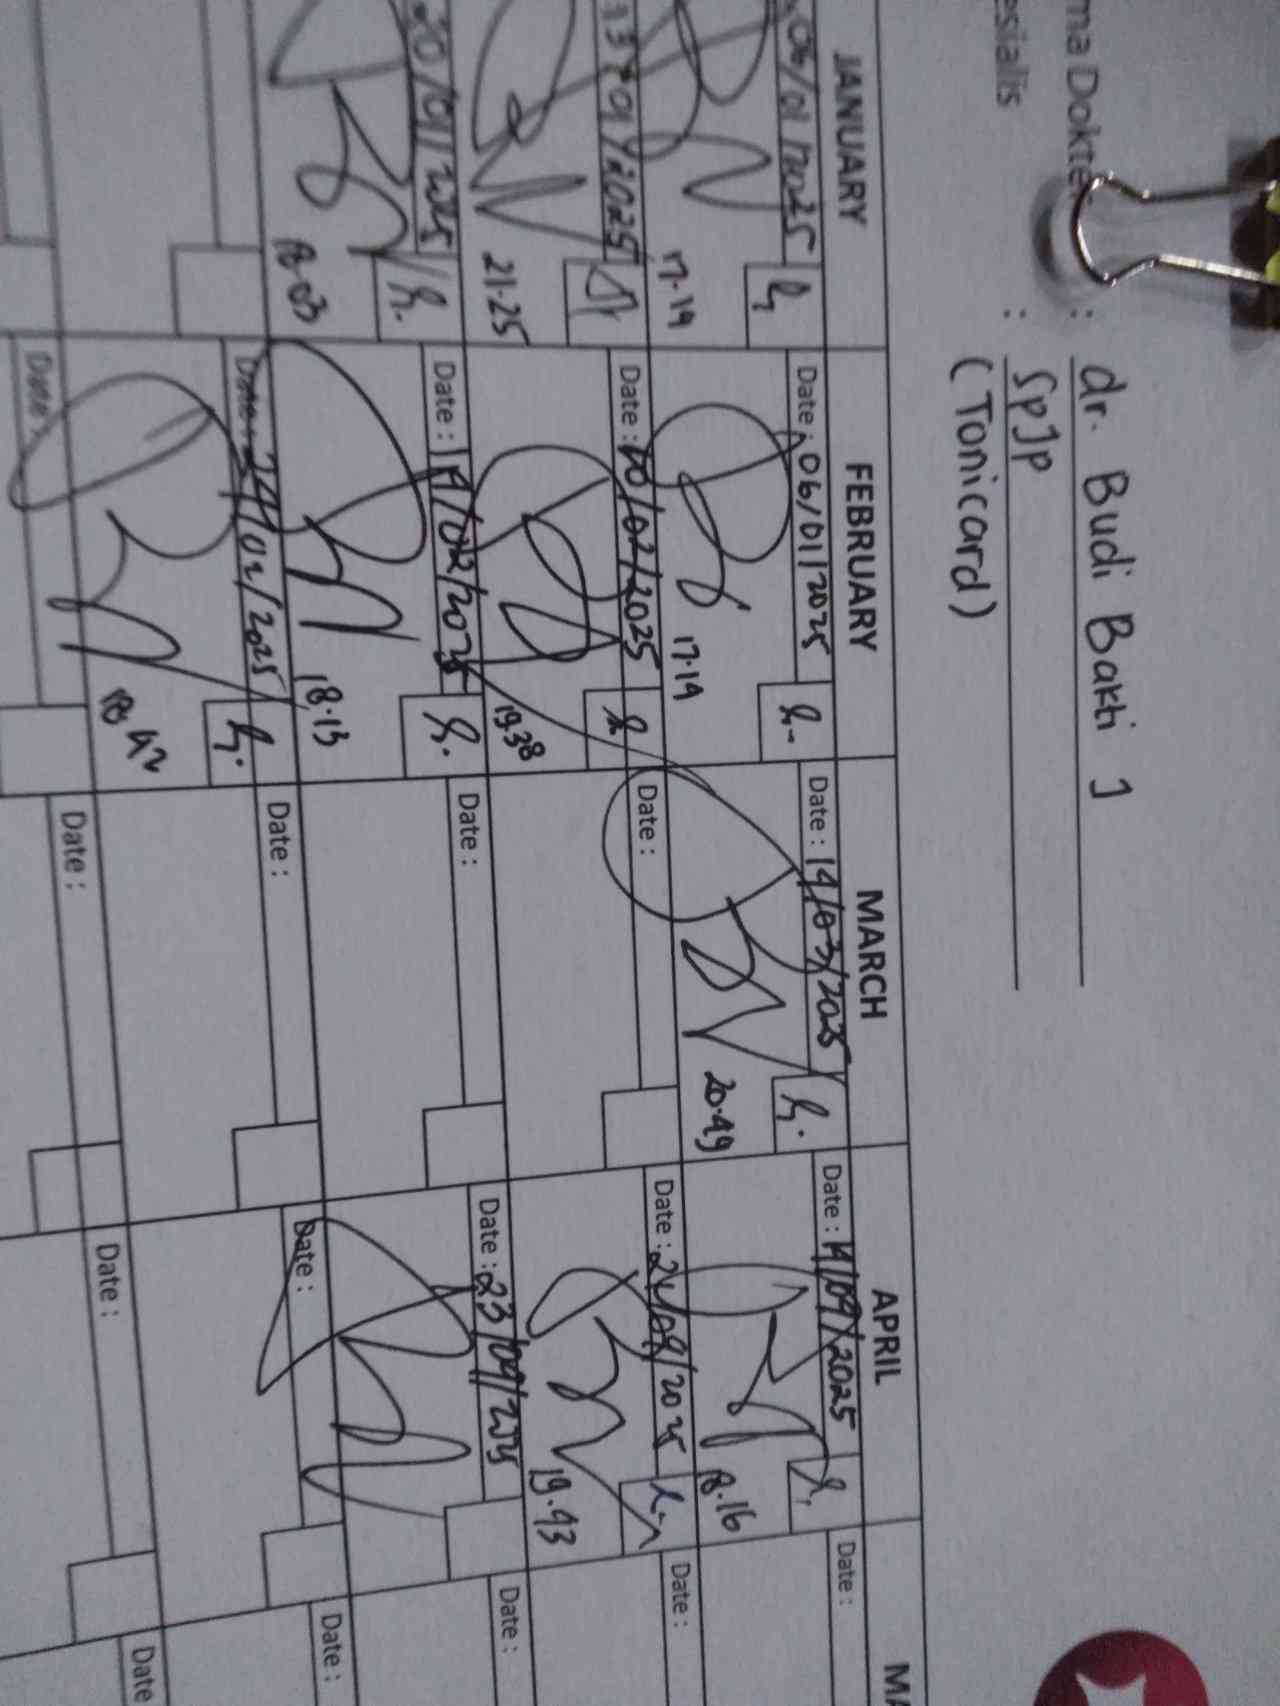 ma Dokte : dr. Budi Bakti 1
esialis : SpJp
(Tonicard)
JANUARY FEBRUARY MARCH APRIL MA
06/01/2025 Date : 06/01/2025 Date : 14/03/2025 Date : 14/04/2025 Date :
17.19 17.19 20.49 18.16
2025 Date : 10/02/2025 Date : Date : 21/04/2025 Date :
21.25 19.38 19.43
20/01/2025 Date : 14/02/2025 Date : Date : 23/04/2025 Date :
18.03 18.13
Date : 24/02/2025 Date : Date : Date :
18.42
Date : Date : Date : Date